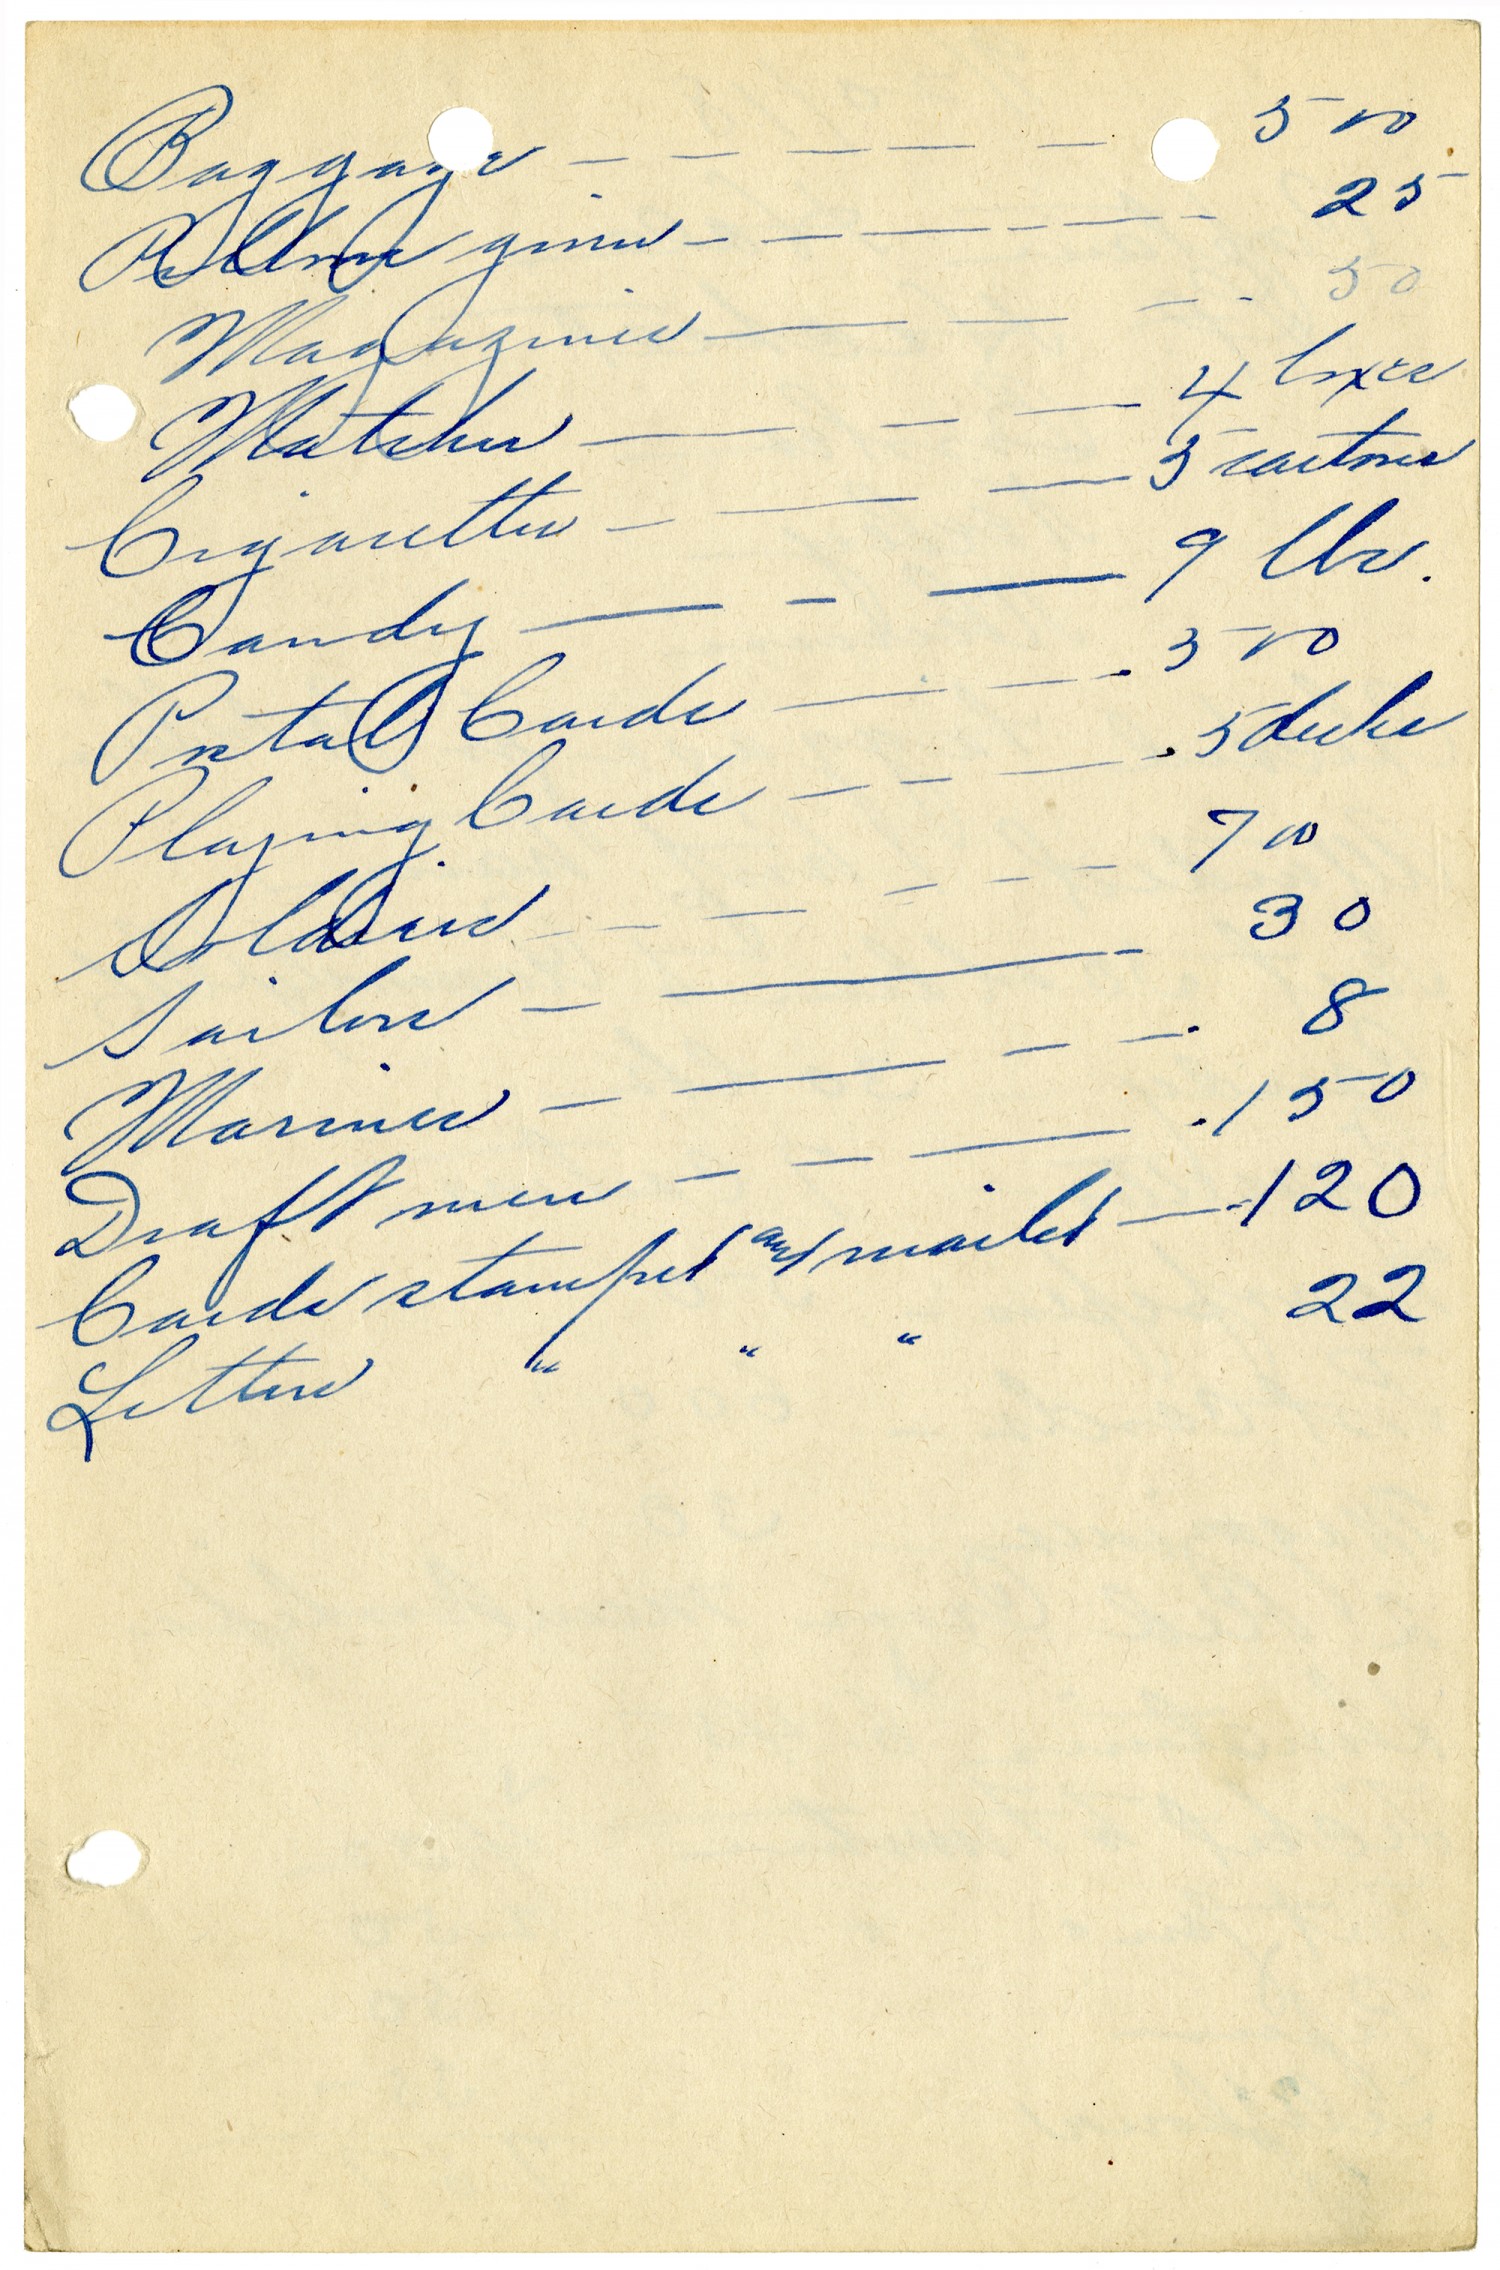 Baggage — — — — — 500
Pillows given — — — — — 25
Magazines — — — - 50
Matches — — — 4 boxes
Cigarettes — — — 5 cartons
Candy — - — 9 lbs.
Postal Cards — — . 500
Playing Cards — — — . 5 decks
Soldiers — — — — — 700
Sailors — — 30
Marines — — — — . 8
Draft men — — — . 150
Cards stamped and mailed — 120
Letters " " " 22